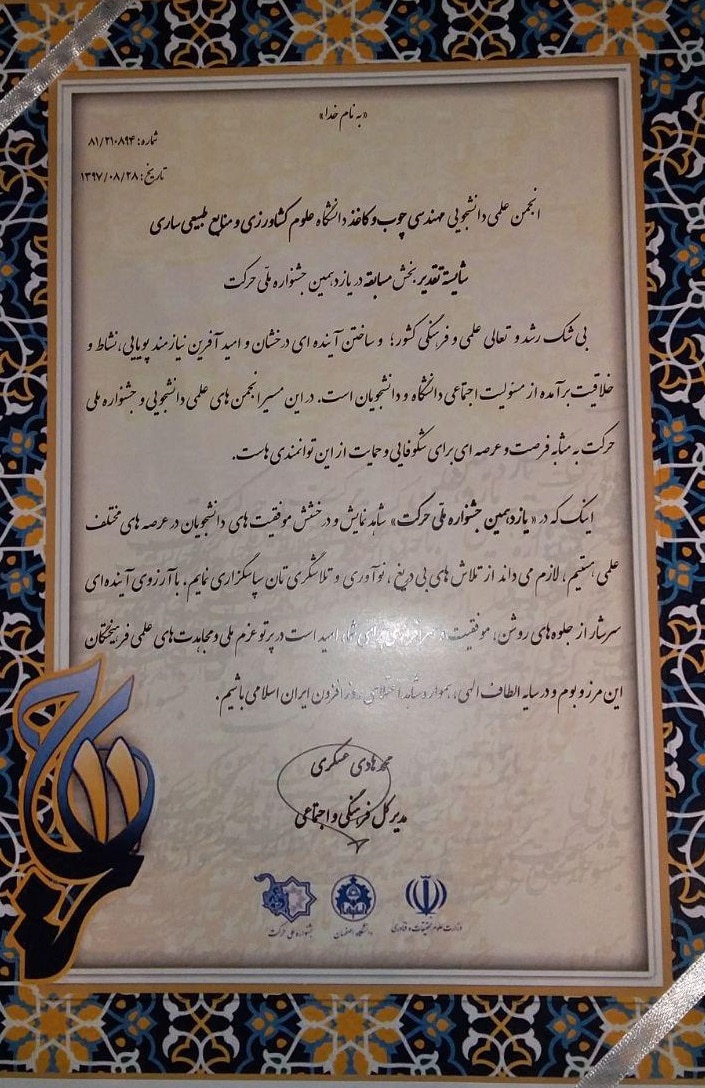 «به نام خدا»
شماره: ۸۱/۲۱۰۸۹۴
تاریخ: ۱۳۹۷/۰۸/۲۸
انجمن علمی دانشجویی مهندسی چوب و کاغذ دانشگاه علوم کشاورزی و منابع طبیعی ساری
شایسته تقدیر بخش مسابقه در یازدهمین جشنواره ملّی حرکت
بی شک رشد و تعالی علمی و فرهنگی کشور؛ و ساختن آینده ای درخشان و امید آفرین نیازمند پویایی، نشاط و
خلاقیت برآمده از مسئولیت اجتماعی دانشگاه و دانشجویان است. در این مسیر انجمن های علمی دانشجویی و جشنواره ملی
حرکت به مثابه فرصت و عرصه ای برای شکوفایی و حمایت از این توانمندی هاست.
اینک که در «یازدهمین جشنواره ملّی حرکت» شاهد نمایش و درخشش موفقیت های دانشجویان در عرصه های مختلف
علمی هستیم، لازم می داند از تلاش های بی دریغ، نوآوری و تلاشگری تان سپاسگزاری نمایم. با آرزوی آینده ای
سرشار از جلوه های روشن، موفقیت و برای شما، امید است در پرتو عزم ملی و مجاهدت های علمی فرهیختگان
این مرز و بوم و در سایه الطاف الهی، همواره شاهد اعتلای روز افزون ایران اسلامی باشیم.
محمدهادی عسکری
مدیر کل فرهنگی و اجتماعی
وزارت علوم تحقیقات و فناوری
دانشگاه اصفهان
جشنواره ملی حرکت
حرکت